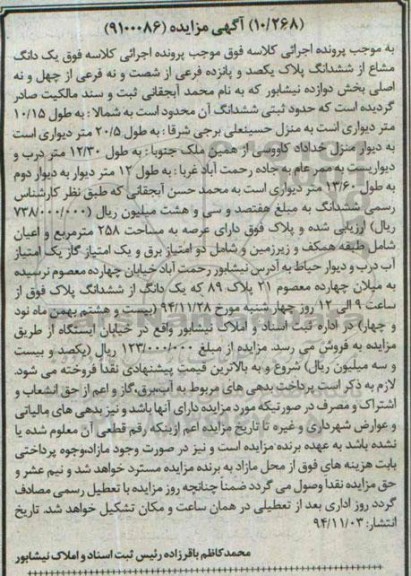 (۱۰/۲۶۸) آگهی مزایده (۹۱۰۰۰۸۶)
به موجب پرونده اجرائی کلاسه فوق موجب پرونده اجرائی کلاسه فوق یک دانگ
مشاع از ششدانگ پلاک یکصد و پانزده فرعی از شصت و نه فرعی از چهل و نه
اصلی بخش دوازده نیشابور که به نام محمد آبجقانی ثبت و سند مالکیت صادر
گردیده است که حدود ثبتی ششدانگ آن محدود است به شمالا : به طول ۱۰/۱۵
متر دیواری است به منزل حسینعلی برجی شرقا : به طول ۲۰/۵ متر دیواری است
به دیوار منزل خداداد کاووسی از همین ملک جنوبا : به طول ۱۲/۳۰ متر درب و
دیواریست به ممر عام به جاده رحمت آباد غربا : به طول ۱۲ متر دیوار به دیوار دوم
به طول ۱۳/۶۰ متر دیواری است به محمد حسن آبجقانی که طبق نظر کارشناس
رسمی ششدانگ به مبلغ هفتصد و سی و هشت میلیون ریال (۷۳۸/۰۰۰/۰۰۰
ریال) ارزیابی شده و پلاک فوق دارای عرصه به مساحت ۲۵۸ مترمربع و اعیان
شامل طبقه همکف و زیرزمین و شامل دو امتیاز برق و یک امتیاز گاز یک امتیاز
آب درب و دیوار حیاط به آدرس نیشابور رحمت آباد خیابان چهارده معصوم نرسیده
به میلان چهارده معصوم ۲۱ پلاک ۸۹ که یک دانگ از ششدانگ پلاک فوق از
ساعت ۹ الی ۱۲ روز چهار شنبه مورخ ۹۴/۱۱/۲۸ (بیست و هشتم بهمن ماه نود
و چهار) در اداره ثبت اسناد و املاک نیشابور واقع در خیابان ایستگاه از طریق
مزایده به فروش می رسد. مزایده از مبلغ ۱۲۳/۰۰۰/۰۰۰ ریال (یکصد و بیست
و سه میلیون ریال) شروع و به بالاترین قیمت پیشنهادی نقداً فروخته می شود.
لازم به ذکر است پرداخت بدهی های مربوط به آب،برق،گاز و اعم از حق انشعاب و
اشتراک و مصرف در صورتیکه مورد مزایده دارای آنها باشد و نیز بدهی های مالیاتی
و عوارض شهرداری و غیره تا تاریخ مزایده اعم ازینکه رقم قطعی آن معلوم شده یا
نشده باشد به عهده برنده مزایده است و نیز در صورت وجود مازاد،وجوه پرداختی
بابت هزینه های فوق از محل مازاد به برنده مزایده مسترد خواهد شد و نیم عشر و
حق مزایده نقداً وصول می گردد ضمناً چنانچه روز مزایده با تعطیل رسمی مصادف
گردد روز اداری بعد از تعطیلی در همان ساعت و مکان تشکیل خواهد شد. تاریخ
انتشار: ۹۴/۱۱/۰۳
محمدکاظم باقرزاده رئیس ثبت اسناد و املاک نیشابور